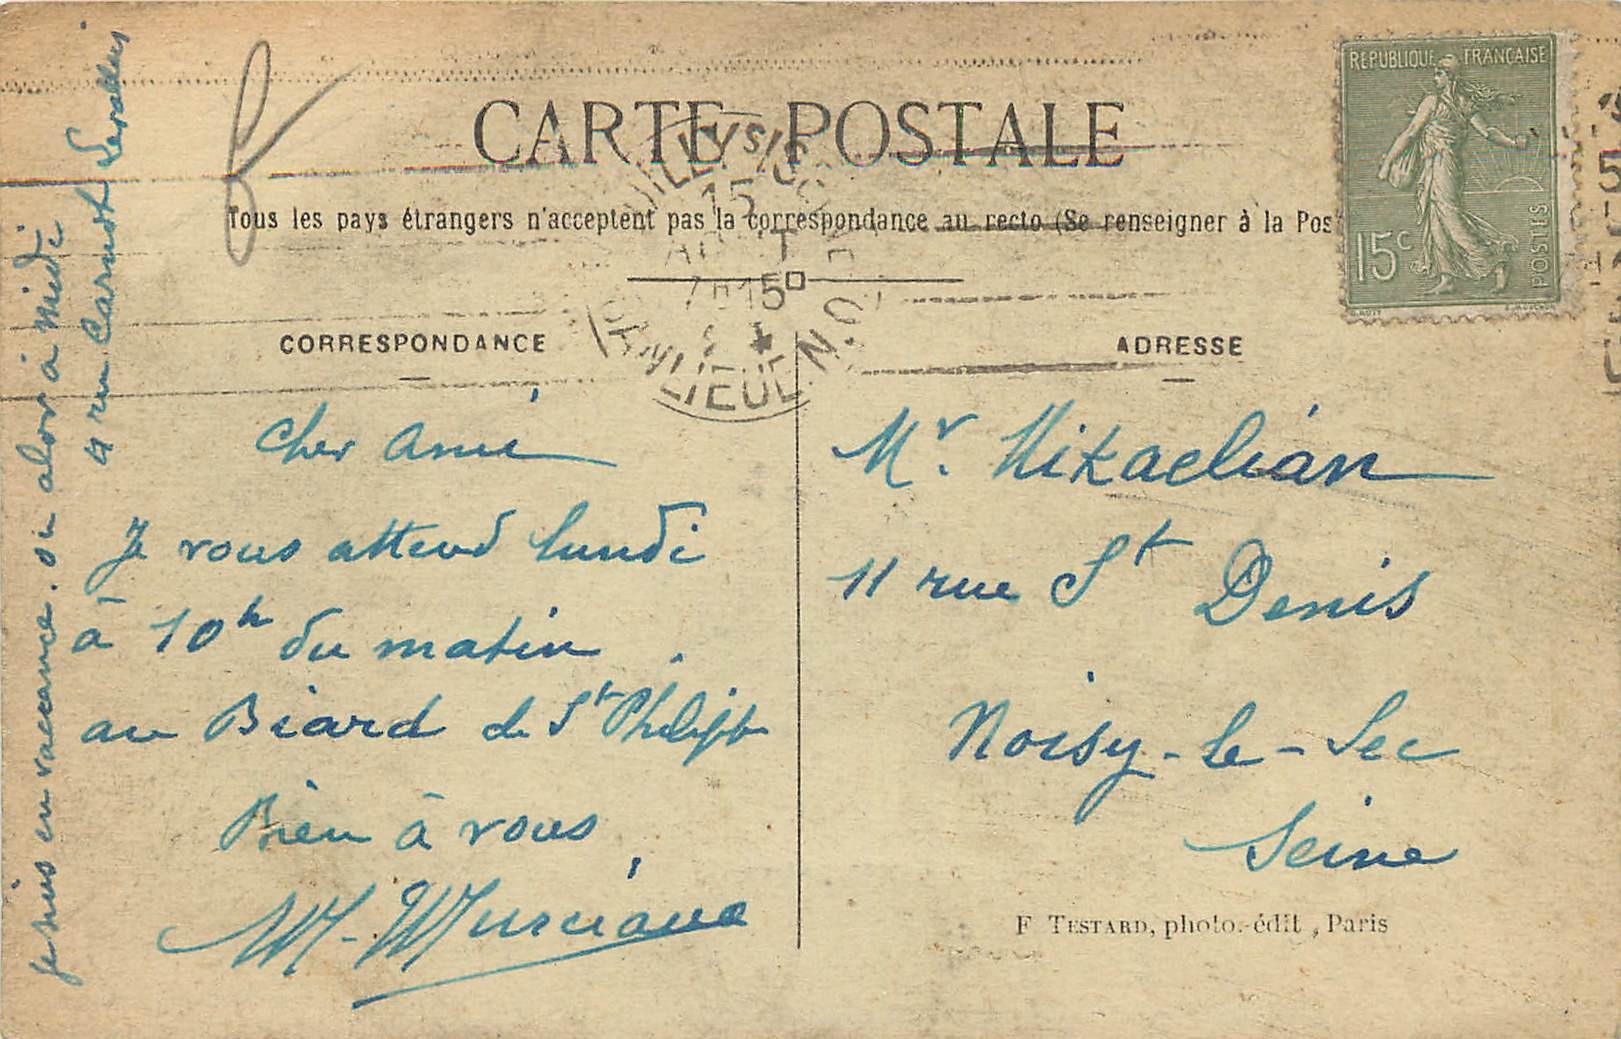 CARTE POSTALE
Tous les pays étrangers n'acceptent pas la correspondance au recto (Se renseigner à la Pos
RÉPUBLIQUE FRANÇAISE
15c
POSTES
CORRESPONDANCE
Cher Ami
Je vous attend lundi
à 10h du matin
au Biard de St Philippe
Bien à vous
M. Murciano
Je suis en vaccance. ou alor à Midi
4 rue Carnot Levallois
ADRESSE
Mr. Mikaelian
11 rue St Denis
Noisy-le-Sec
Seine
F TESTARD, photo.-édit, Paris
15
7h15